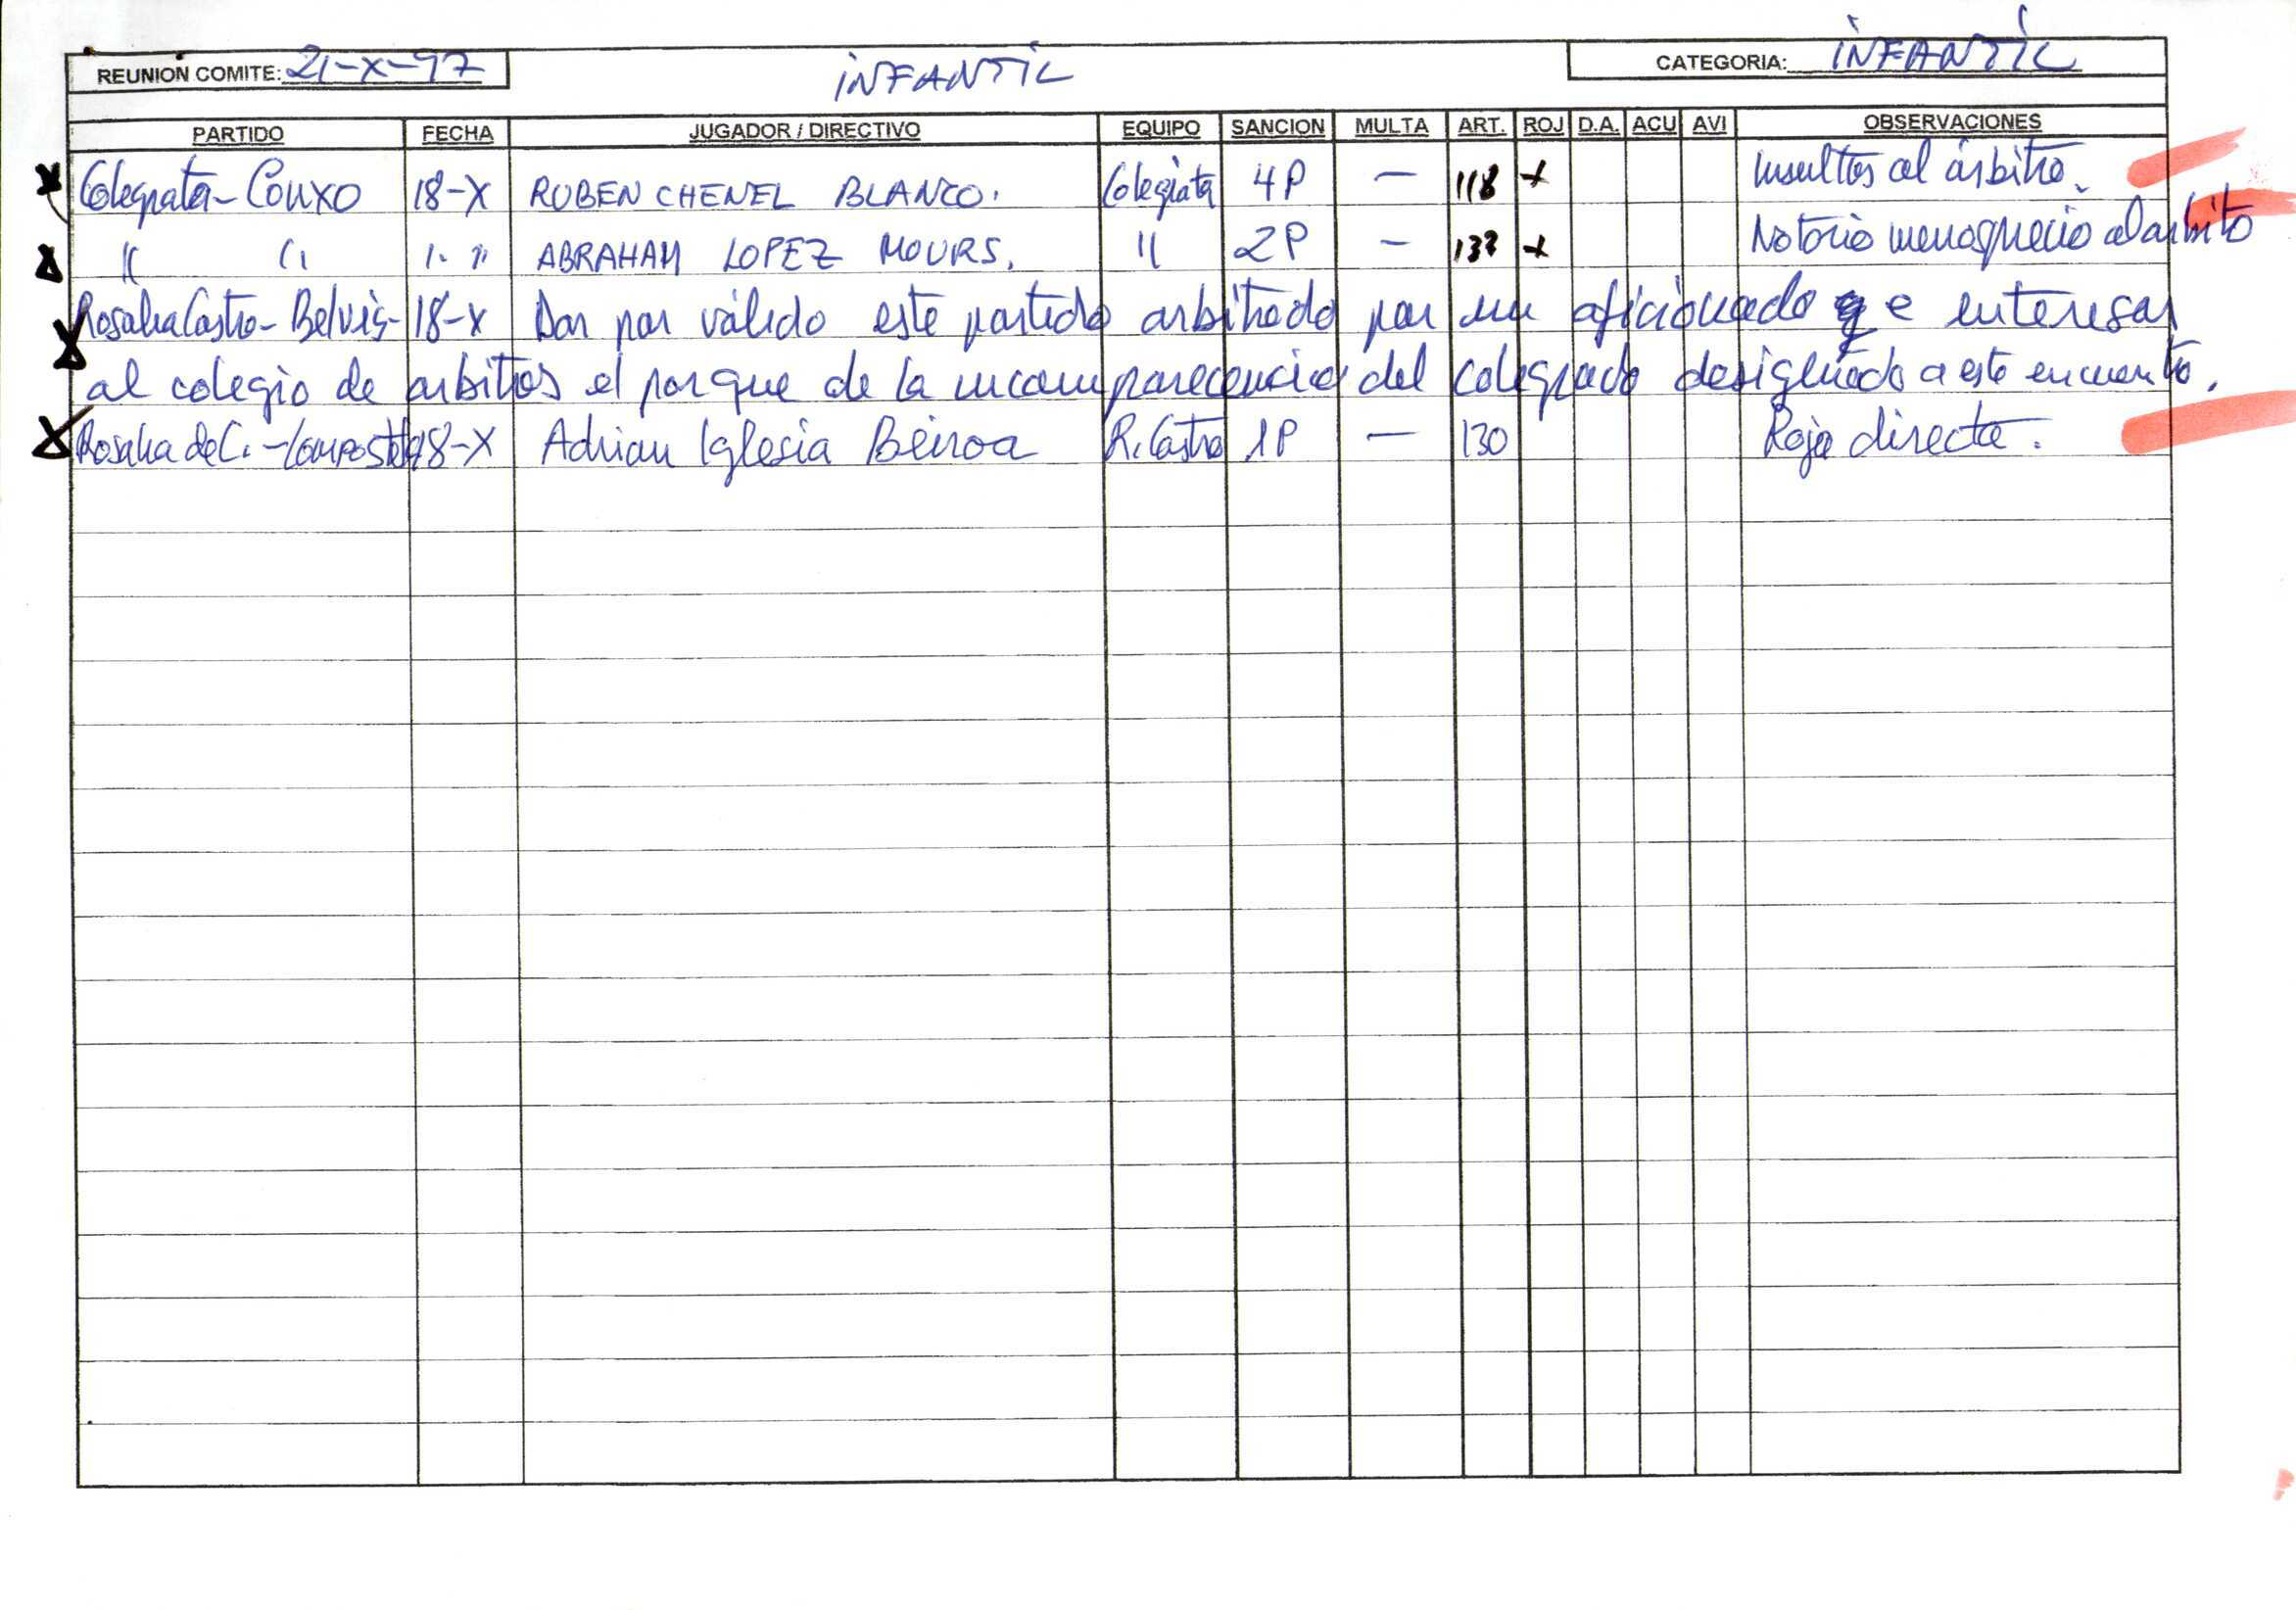 REUNION COMITE: 21-X-97 INFANTIL CATEGORIA: INFANTIL
PARTIDO FECHA JUGADOR / DIRECTIVO EQUIPO SANCION MULTA ART. ROJ D.A. ACU AVI OBSERVACIONES
Colegiata - Conxo 18-X RUBEN CHENEL BLANCO. Colegiata 4P — 118 + Insultos al árbitro.
" " " " ABRAHAM LOPEZ MOURS. " 2P — 133 + Notorio menosprecio al arbito
Rosalia Castro - Belvis - 18-X Dar por válido este partido arbitrado por un aficionado e interesar
al colegio de arbitros el porque de la incomparecencia del colegiado designado a este encuentro.
Rosalia de C. - Compostela 18-X Adrian Iglesia Beiroa R. Castro 1P — 130 Roja directa.